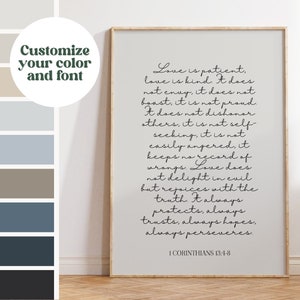 Customize
your color
and font
Love is patient,
love is kind. It does
not envy, it does not
boast, it is not proud.
It does not dishonor
others, it is not self-
seeking, it is not
easily angered, it
keeps no record of
wrongs. Love does
not delight in evil
but rejoices with the
truth. It always
protects, always
trusts, always hopes,
always perseveres.
1 CORINTHIANS 13:4-8